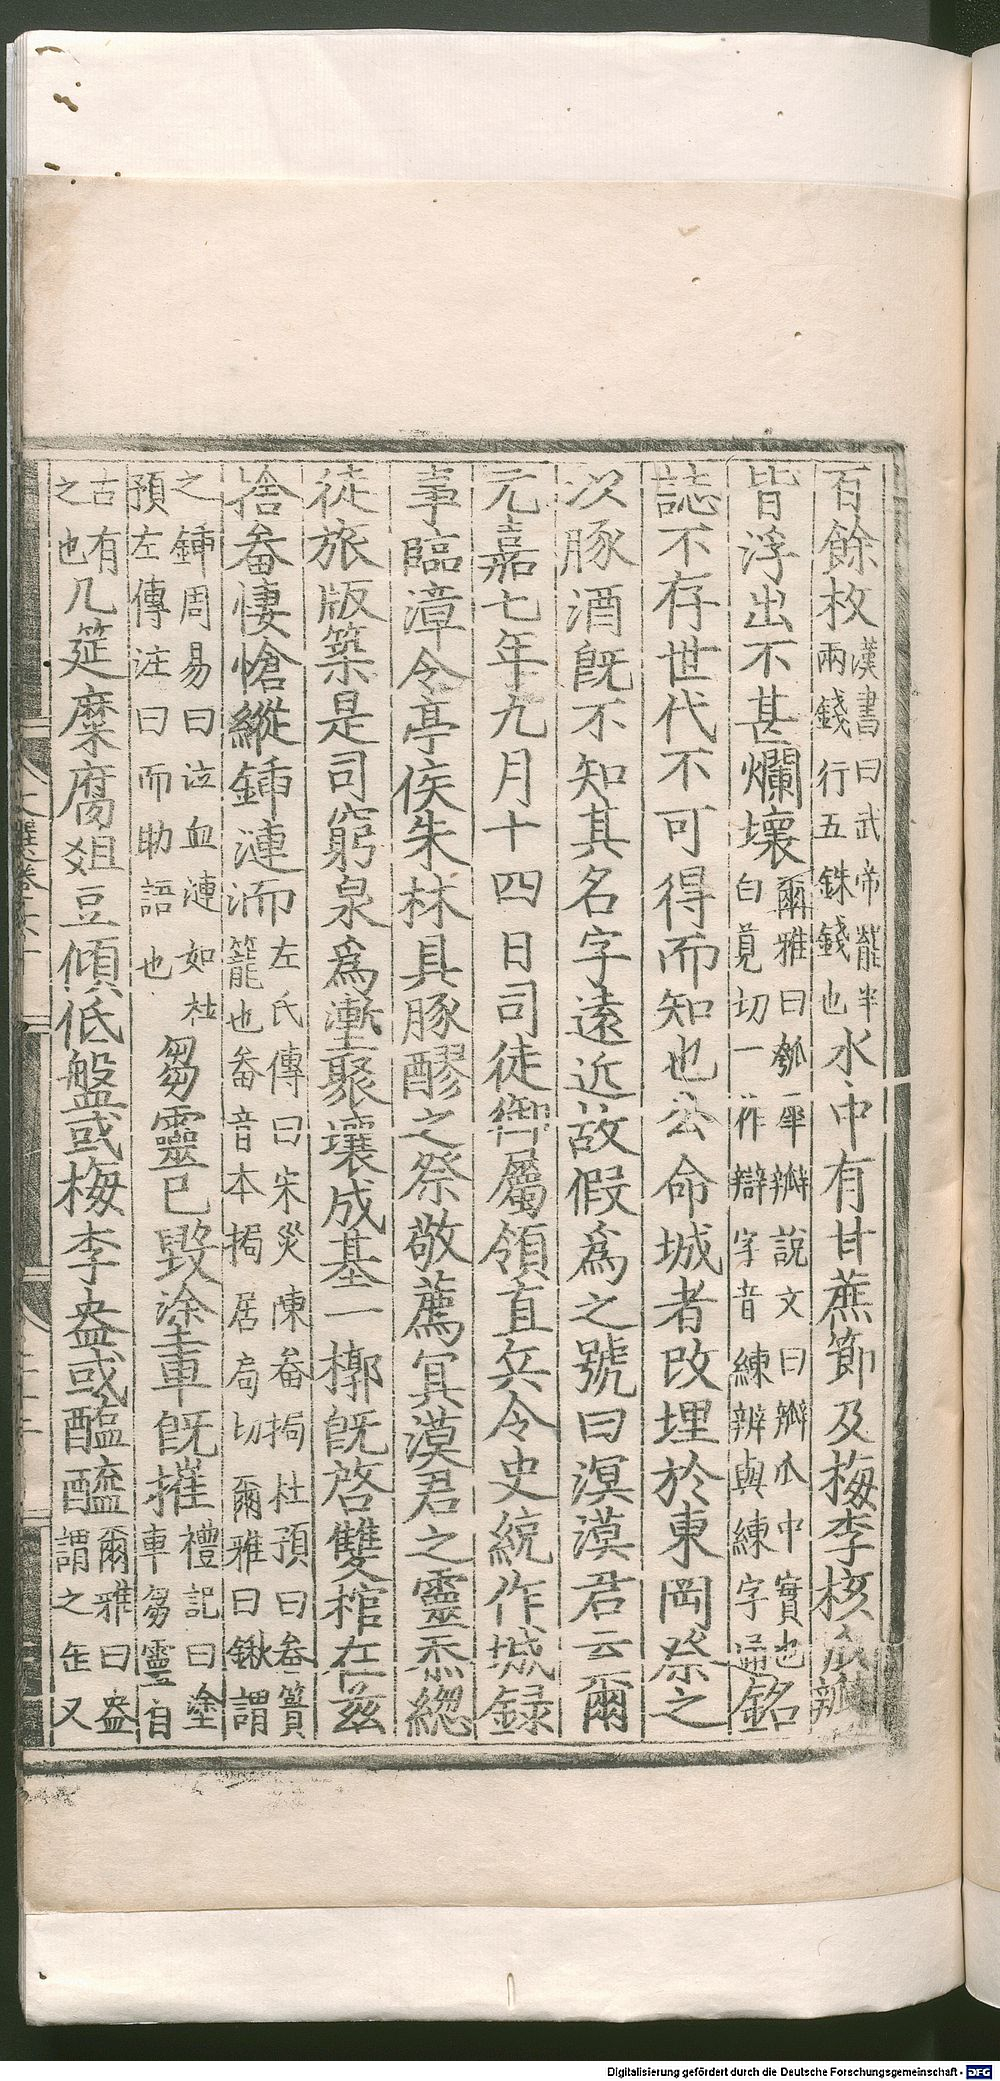 百餘枚漢書曰武帝罷半兩錢行五銖錢也水中有甘蔗節及梅李核瓜瓣
皆浮出不甚爛壞爾雅曰瓠犀瓣說文曰瓣瓜中實也白莧切一作辯字音練辨與練字通銘
誌不存世代不可得而知也公命城者改埋於東岡祭之
以豚酒既不知其名字遠近故假爲之號曰溟漠君云爾
元嘉七年九月十四日司徒御屬領直兵令史統作城録
事臨漳令亭侯朱林具豚醪之祭敬薦冥漠君之靈忝緫
徒旅版築是司窮泉爲壍聚壤成基一槨既啓雙棺在茲
捨畚悽愴縱鍤漣洏左氏傳曰宋災陳畚挶杜預曰畚簣籠也畚音本挶居局切爾雅曰鍬謂
之鍤周易曰泣血漣如杜預左傳注曰而助語也芻靈已毀塗車既摧禮記曰塗車芻靈自
古有之也几筵糜腐俎豆傾低盤或梅李盎或醢醯爾雅曰盎謂之缶又
Digitalisierung gefördert durch die Deutsche Forschungsgemeinschaft - DFG